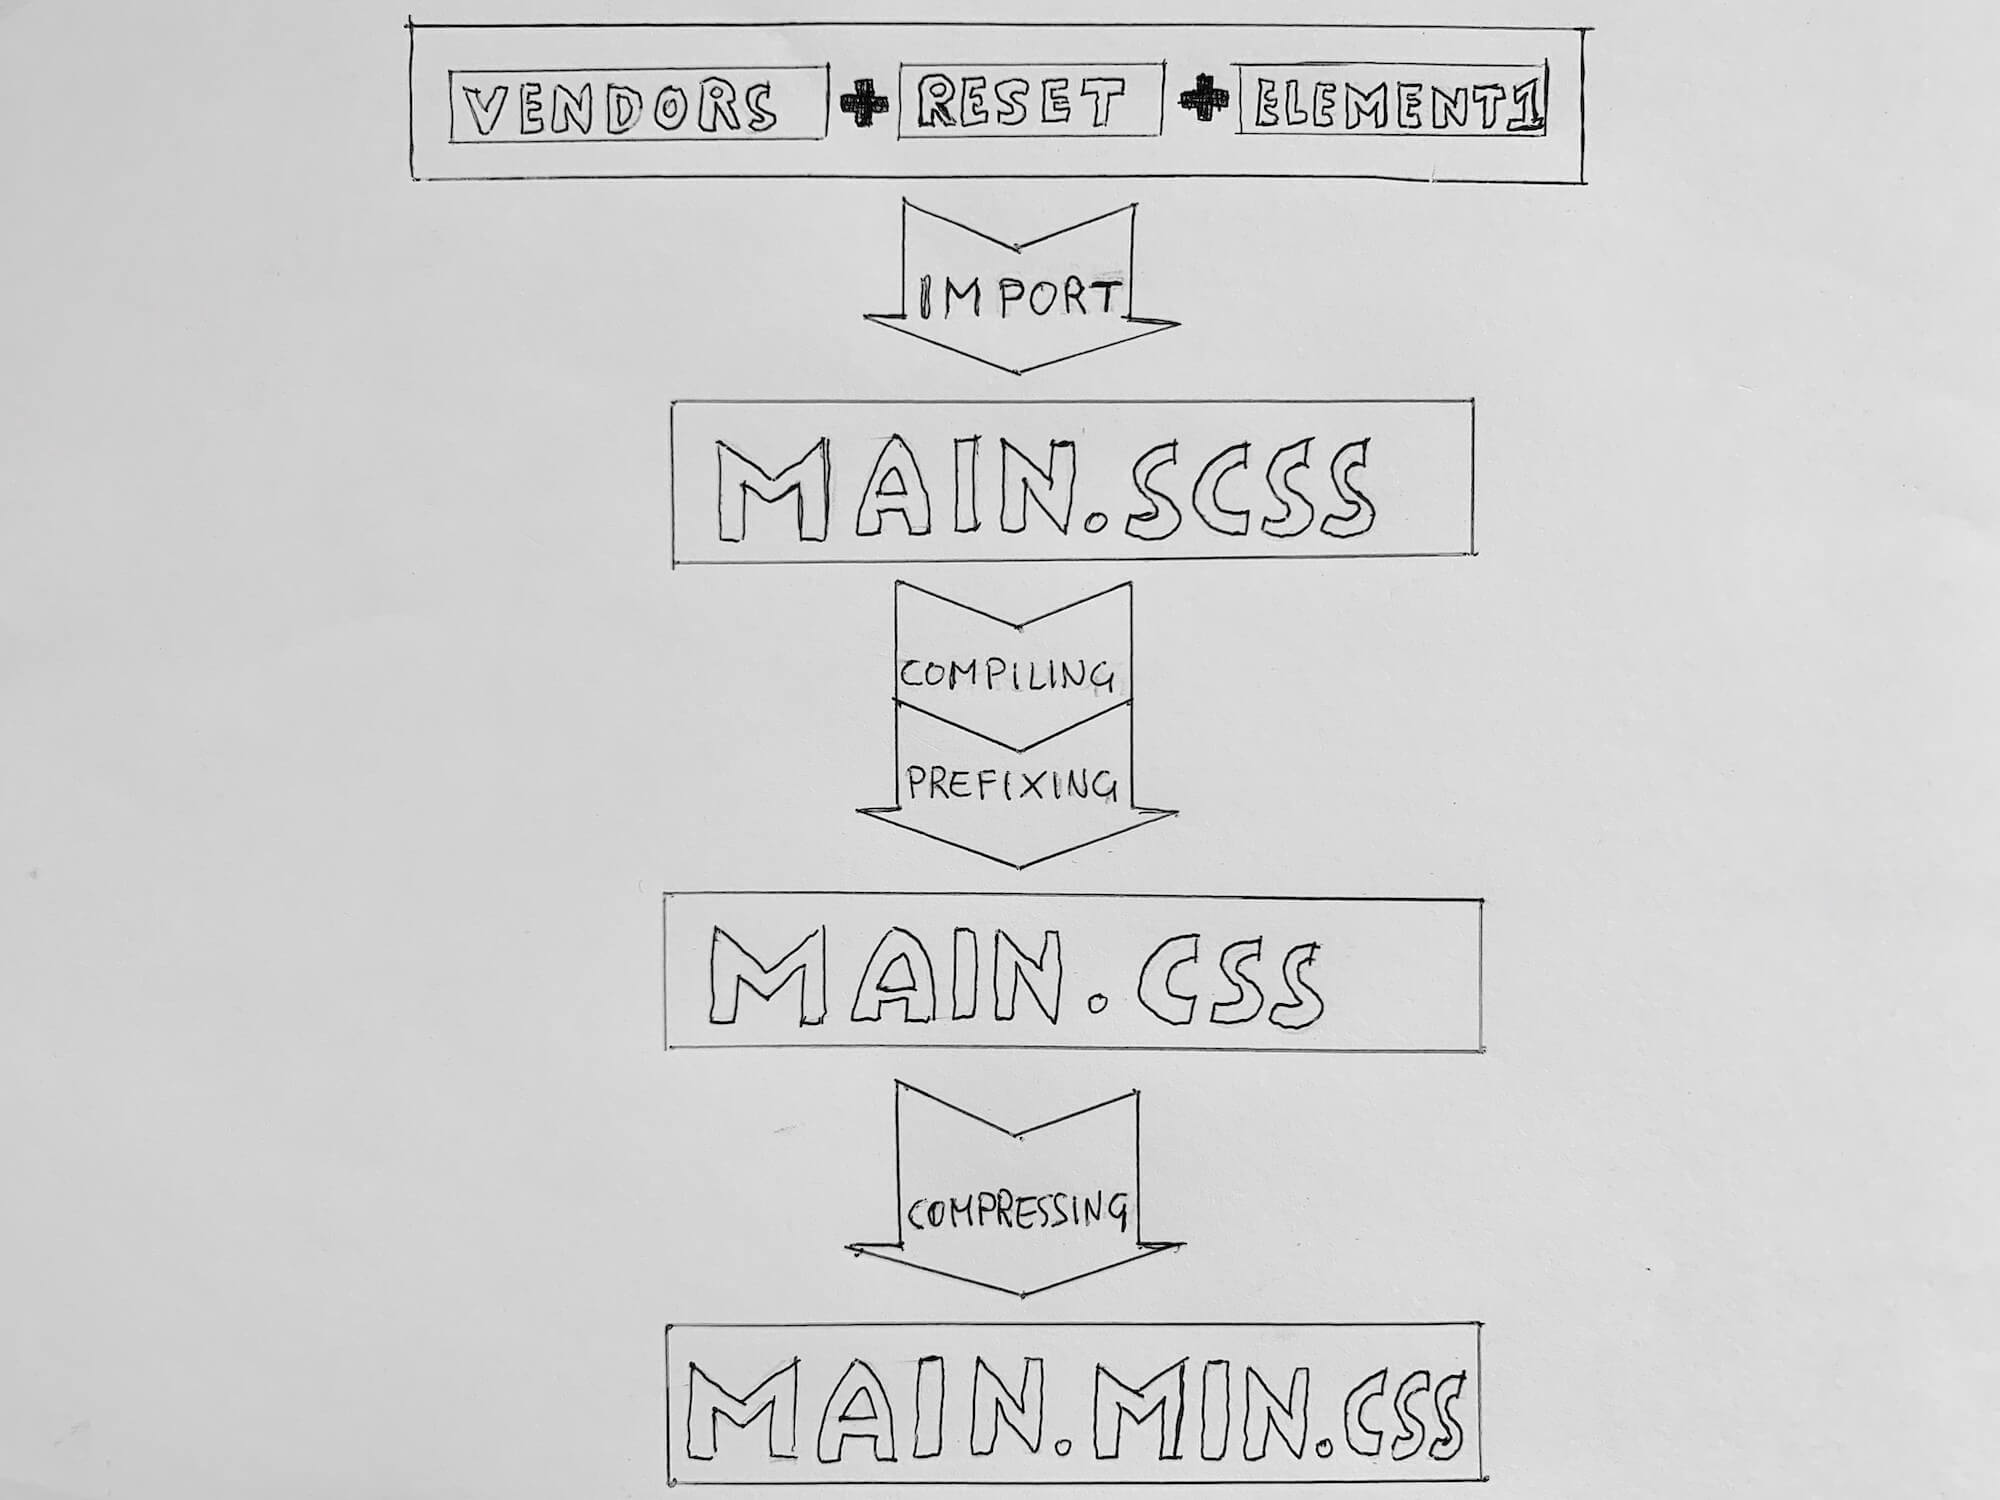 VENDORS + RESET + ELEMENT1
IMPORT
MAIN.SCSS
COMPILING
PREFIXING
MAIN.CSS
COMPRESSING
MAIN.MIN.CSS